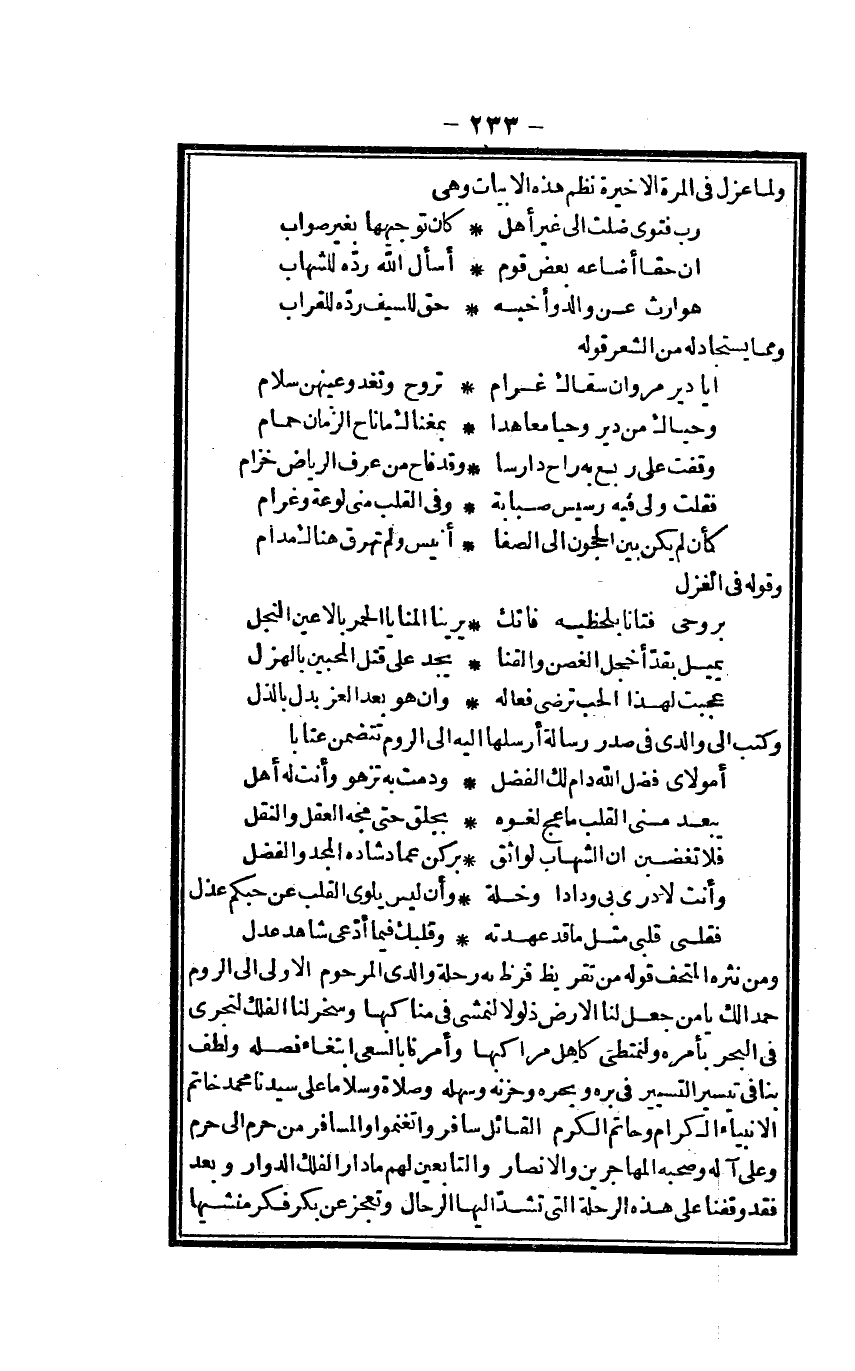 - ٢٣٣ -
ولما عزل فى المرة الاخيرة نظم هذه الابيات وهى
رب فتوى ضلت الى غير أهل * كان توجيهها بغير صواب
ان حقا أضاعه بعض قوم * أسأل الله ردّه للشهاب
هوارث عن والد وأخيه * حق للسيف ردّه للقراب
ومما يستجاد له من الشعر قوله
ايا دير مروان سقاك غرام * تروح وتغدو عينهن سلام
وحياك من دير وحيا معاهدا * بمغناك ماناح الزمان حمام
وقفت على ربع به راح دارسا * وقد فاح من عرف الرياض خزام
فقلت ولى فيه رسيس صبابة * وفى القلب منى لوعة وغرام
كأن لم يكن بين الحجون الى الصفا * أنيس ولم تهرق هناك مدام
وقوله فى الغزل
بروحى فتانا بلحظيه فاتك * يرينا المنايا الحمر بالاعين النجل
يميل بقدّ أخجل الغصن والقنا * يجد على قتل المحبين بالهزل
عجبت لهذا الحب ترضى فعاله * وان هو بعد العز بدل بالذل
وكتب الى والدى فى صدر رسالة أرسلها اليه الى الروم تتضمن عتابا
أمولاى فضل الله دام لك الفضل * ودمت به تزهو وأنت له أهل
يبعد منى القلب ماعج لغوه * بجلق حتى مجه العقل والنقل
فلا تغضبن ان الشهاب لواثق * بركن عماد شاده المجد والفضل
وأنت لادرى بى ودادا وخلة * وأن ليس يلوى القلب عن حبكم عذل
فقلبى قلبى مثل ماقد عهدته * وقلبك فيما أدّعى شاهد عدل
ومن نثره المتحف قوله من تقريظ قرظ به رحلة والدى المرحوم الاولى الى الروم
حمدا لك يامن جعل لنا الارض ذلولا لنمشى فى مناكبها وسخر لنا الفلك لتجرى
فى البحر بأمره ولنمتطى كاهل مراكبها وأمرنا بالسعى ابتغاء فضله ولطف
بنا فى تيسير التسيير فى بره وبحره وحزنه وسهله وصلاة وسلاما على سيدنا محمد خاتم
الانبياء الكرام وحاتم الكرم القائل سافروا تغنموا والمسافر من حرم الى حرم
وعلى آله وصحبه المهاجرين والانصار والتابعين لهم مادار الفلك الدوار وبعد
فقد وقفنا على هذه الرحلة التى تشدّ اليها الرحال وتعجز عن بكر فكر منشيها